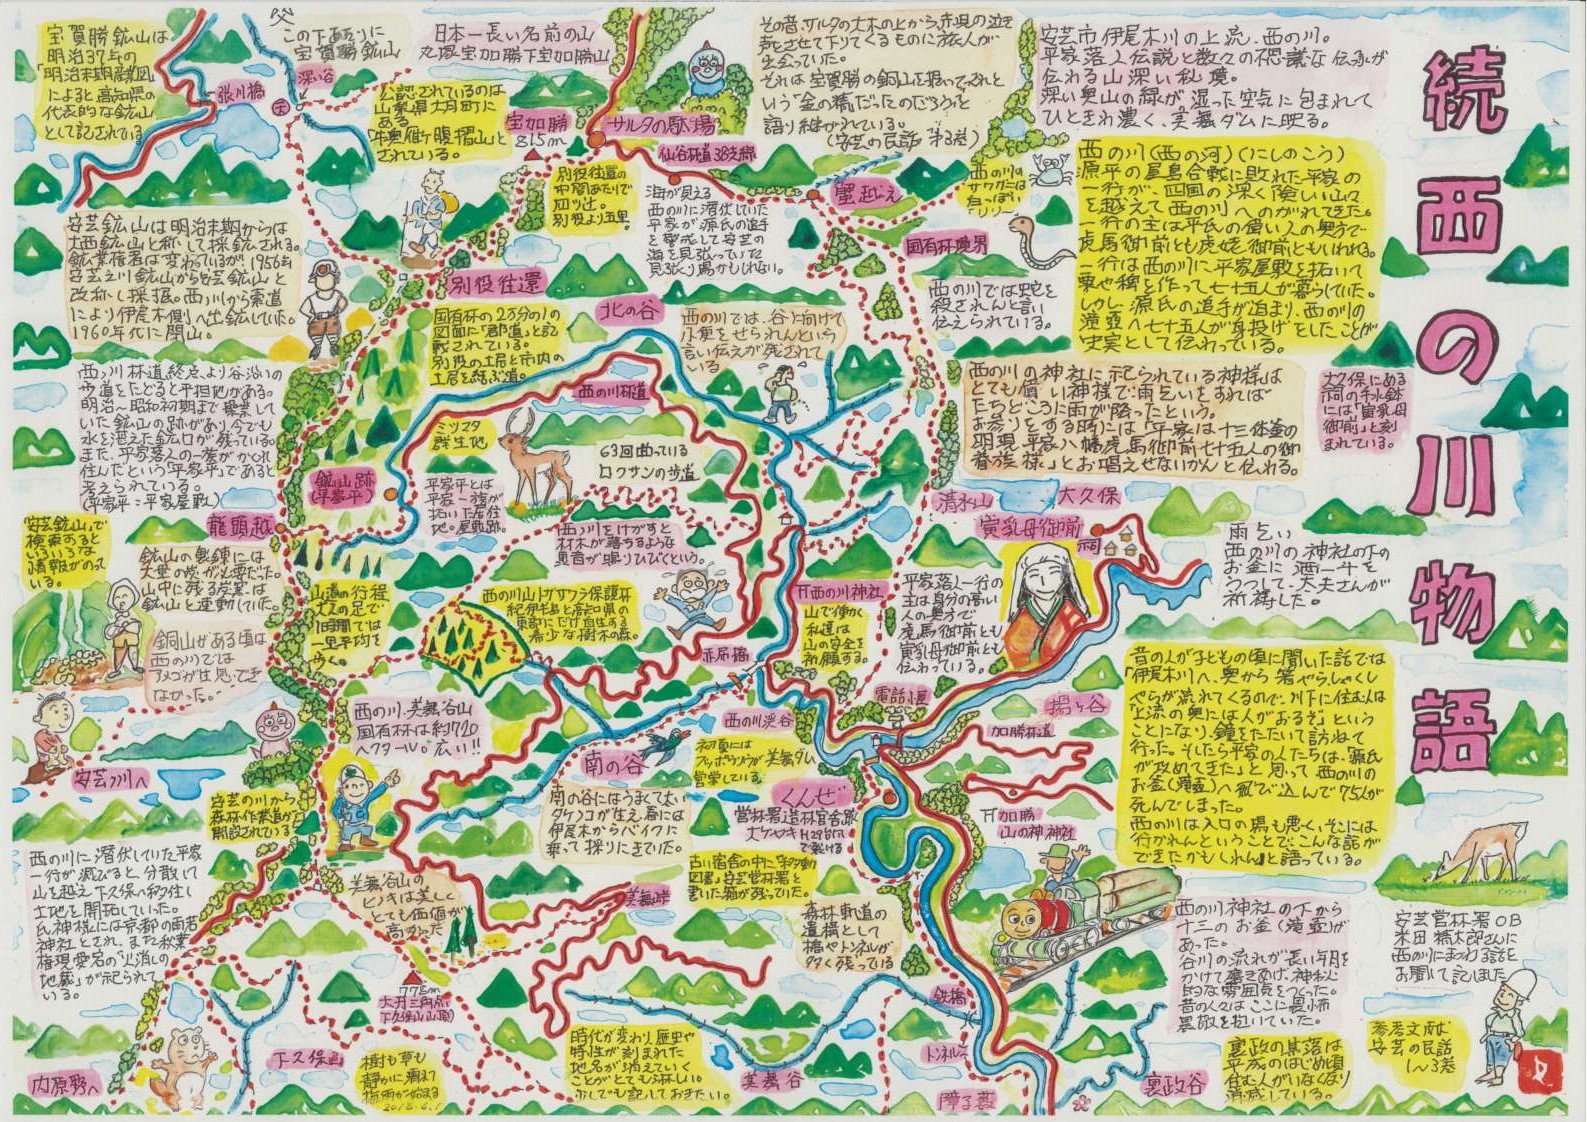 続西の川物語
安芸市伊尾木川の上流、西の川。
平家落人伝説と数々の不思議な伝承が
伝わる山深い秘境。
深い奥山の緑が、湿った空気に包まれて
ひときわ濃く、美舞ダムに映る。
西の川(西の河)(にしのこう)
源平の屋島合戦に敗れた平家の
一行が、四国の深く険しい山々
を越えて西の川へのがれてきた。
一行の主は平氏の偉い人の奥方で
虎馬御前とも虎姥御前ともいわれる。
一行は西の川に平家屋敷を拓いて
粟や稗を作って七十五人が暮らしていた。
しかし源氏の追手が迫まり、西の川の
滝壺へ七十五人が身投げをしたことが
史実として伝わっている。
その昔、サルタの大木の上から赤児の泣き
声をさせて下りてくるものに旅人が
出会っていた。
それは宝賀勝の銅山を掘ってくれと
いう"金の精"だったのだろうと
語り継がれている。
(安芸の民話 第3巻)
日本一長い名前の山
丸塚宝加勝下宝加勝山
公認されているのは
山梨県大月町に
ある
「牛奥雁ヶ腹摺山」と
されている。
この下あたりに
宝賀勝鉱山
深谷
張川橋
宝賀勝鉱山は
明治37年の
によると高知県の
代表的な鉱山
として記されている
宝加勝
815m
サルタの駄場
仙谷林道38支線
蟹越え
西の川の
サワガニは
国有林境界
別役往還の
中間あたりで
四ツ辻。
別役より五里。
海が見える
西の川に潜伏していた
平家が源氏の追手
を警戒して安芸の
海を見張っていた
見張り場かもしれない。
西の川では蛇を
殺されんと言い
伝えられている。
安芸鉱山は明治末期からは
大西鉱山と称して採鉱される。
鉱業権者は変わっているが、1956年
安芸之川鉱山から安芸鉱山と
改称し採掘。西の川から索道
により伊尾木側へ出鉱していた。
1960年代に閉山。
別役往還
国有林の2万分の1の
図面に「君が道」と記
載されている。
別役の土居と市内の
土居を結ぶ道。
北の谷
西の川では、谷に向けて
小便をせられんという
言い伝えが残されて
いる
西の川の神社に祀られている神様は
とても偉い神様で、雨乞いをすれば
たちどころに雨が降ったという。
お祈りをする時には「平家は十三体釜の
明現、平家八幡虎馬御前七十五人の御
眷族様」とお唱えせないかんと伝わる。
大久保にある
祠の手水鉢
には「寅乳母
御前」と刻
まれている。
西ノ川林道終点より谷沿いの
歩道をたどると平担地がある。
明治〜昭和初期まで操業して
いた鉱山の跡があり今でも
水を湛えた鉱口が残っている。
また、平家落人の一族がかくれ
住んだという「平家平」であると
考えられている。
(平家平=平家屋敷)
西の川林道
ミツマタ
群生地
63回曲っている
ロクサンの歩道
鉱山跡
(平家平)
平家平とは
平家一族が
拓いた居住
地。屋敷跡。
西の川をけがすと
材木が落ちるような
異音が鳴りひびくという。
清水山
大久保
寅乳母御前
祠
雨乞い
西の川の神社の下の
お釜に酒一斗を
うつして、太夫さんが
祈祷した。
龍頭越
安芸鉱山で
検索すると
いろいろな
情報がのって
いる。
鉱山の製錬には
大量の炭が必要だった。
山中に残る炭窯は
鉱山と連動していた。
銅山がある頃は
西の川では
アメゴが生息でき
なかった。
山道の行程
大人の足で
1時間では
一里平均を
歩く。
西の川山トガサワラ保護林
紀伊半島と高知県の
東部にだけ自生する
希少な樹木の森。
西の川神社
山で働く
私達は
山の安全を
祈願する。
平家落人一行の
主は自分の高い
人の奥方で
虎馬御前とも
寅乳母御前とも
伝わっている。
赤吊橋
電話小屋
揚ヶ谷
加勝林道
加勝
山の神神社
昔の人が子どもの頃に聞いた話では
「伊尾木川へ、奥から箸やらしゃくし
やらが流れてくるので、川下に住む人は
"上流の奥には人があるぞ"という
ことになり、鐘をたたいて訪ねて
行った。そしたら平家の人たちは「源氏
が攻めてきた」と思って西の川の
お釜(滝壺)へ飛び込んで75人が
死んでしまった。
西の川は入口の場も悪く、そこには
行かれんということでこんな話が
できたかもしれん」と語っている。
西の川、美舞谷山
国有林は約720
ヘクタール。広い!!
西の川渓谷
初夏には
ブッポウソウが美舞ダム
営巣している。
南の谷
南の谷にはうまくて太い
タケノコが生え、春には
伊尾木からバイクに
乗って採りにきていた。
くんぜ
営林署造林宿舎跡
古い宿舎の中に「移動
図書」安芸営林署と
書いた箱が残っていた。
安芸ノ川へ
安芸の川から
森林作業道が
開設されている
西の川に潜伏していた平家
一行が滅びると、分散して
山を越え下久保の移住し
土地を開拓していた。
氏神様には京都の両若
神社とされ、また秋葉
権現愛宕の「火消しの
地蔵」が祀られて
いる。
美舞谷山の
ヒノキは美しく
とても価値が
高かった
美舞峠
森林軌道の
遺構として
橋やトンネルが
多く残っている
775m
大井三角点
下久保山山頂
西の川神社の下から
十三のお釜(滝壺)が
あった。
谷川の流れが長い年月を
かけて磨きあげ、神秘
的な雰囲気をつくった。
安芸営林署OB
米田 精太郎さんに
西の川にまつわる話を
お聞して記しました
鉄橋
トンネル
内原野へ
下久保
樹も草も
静かに濡れて
梅雨が始まる
時代が変わり、歴史や
特性が刻まれた
地名が消えていく
ことがとても淋しい。
少しでも記しておきたい。
美舞谷
裏政谷
裏政の集落は
平成のはじめ頃
住む人がいなくなり
消滅している。
参考文献
安芸の民話
1〜3巻